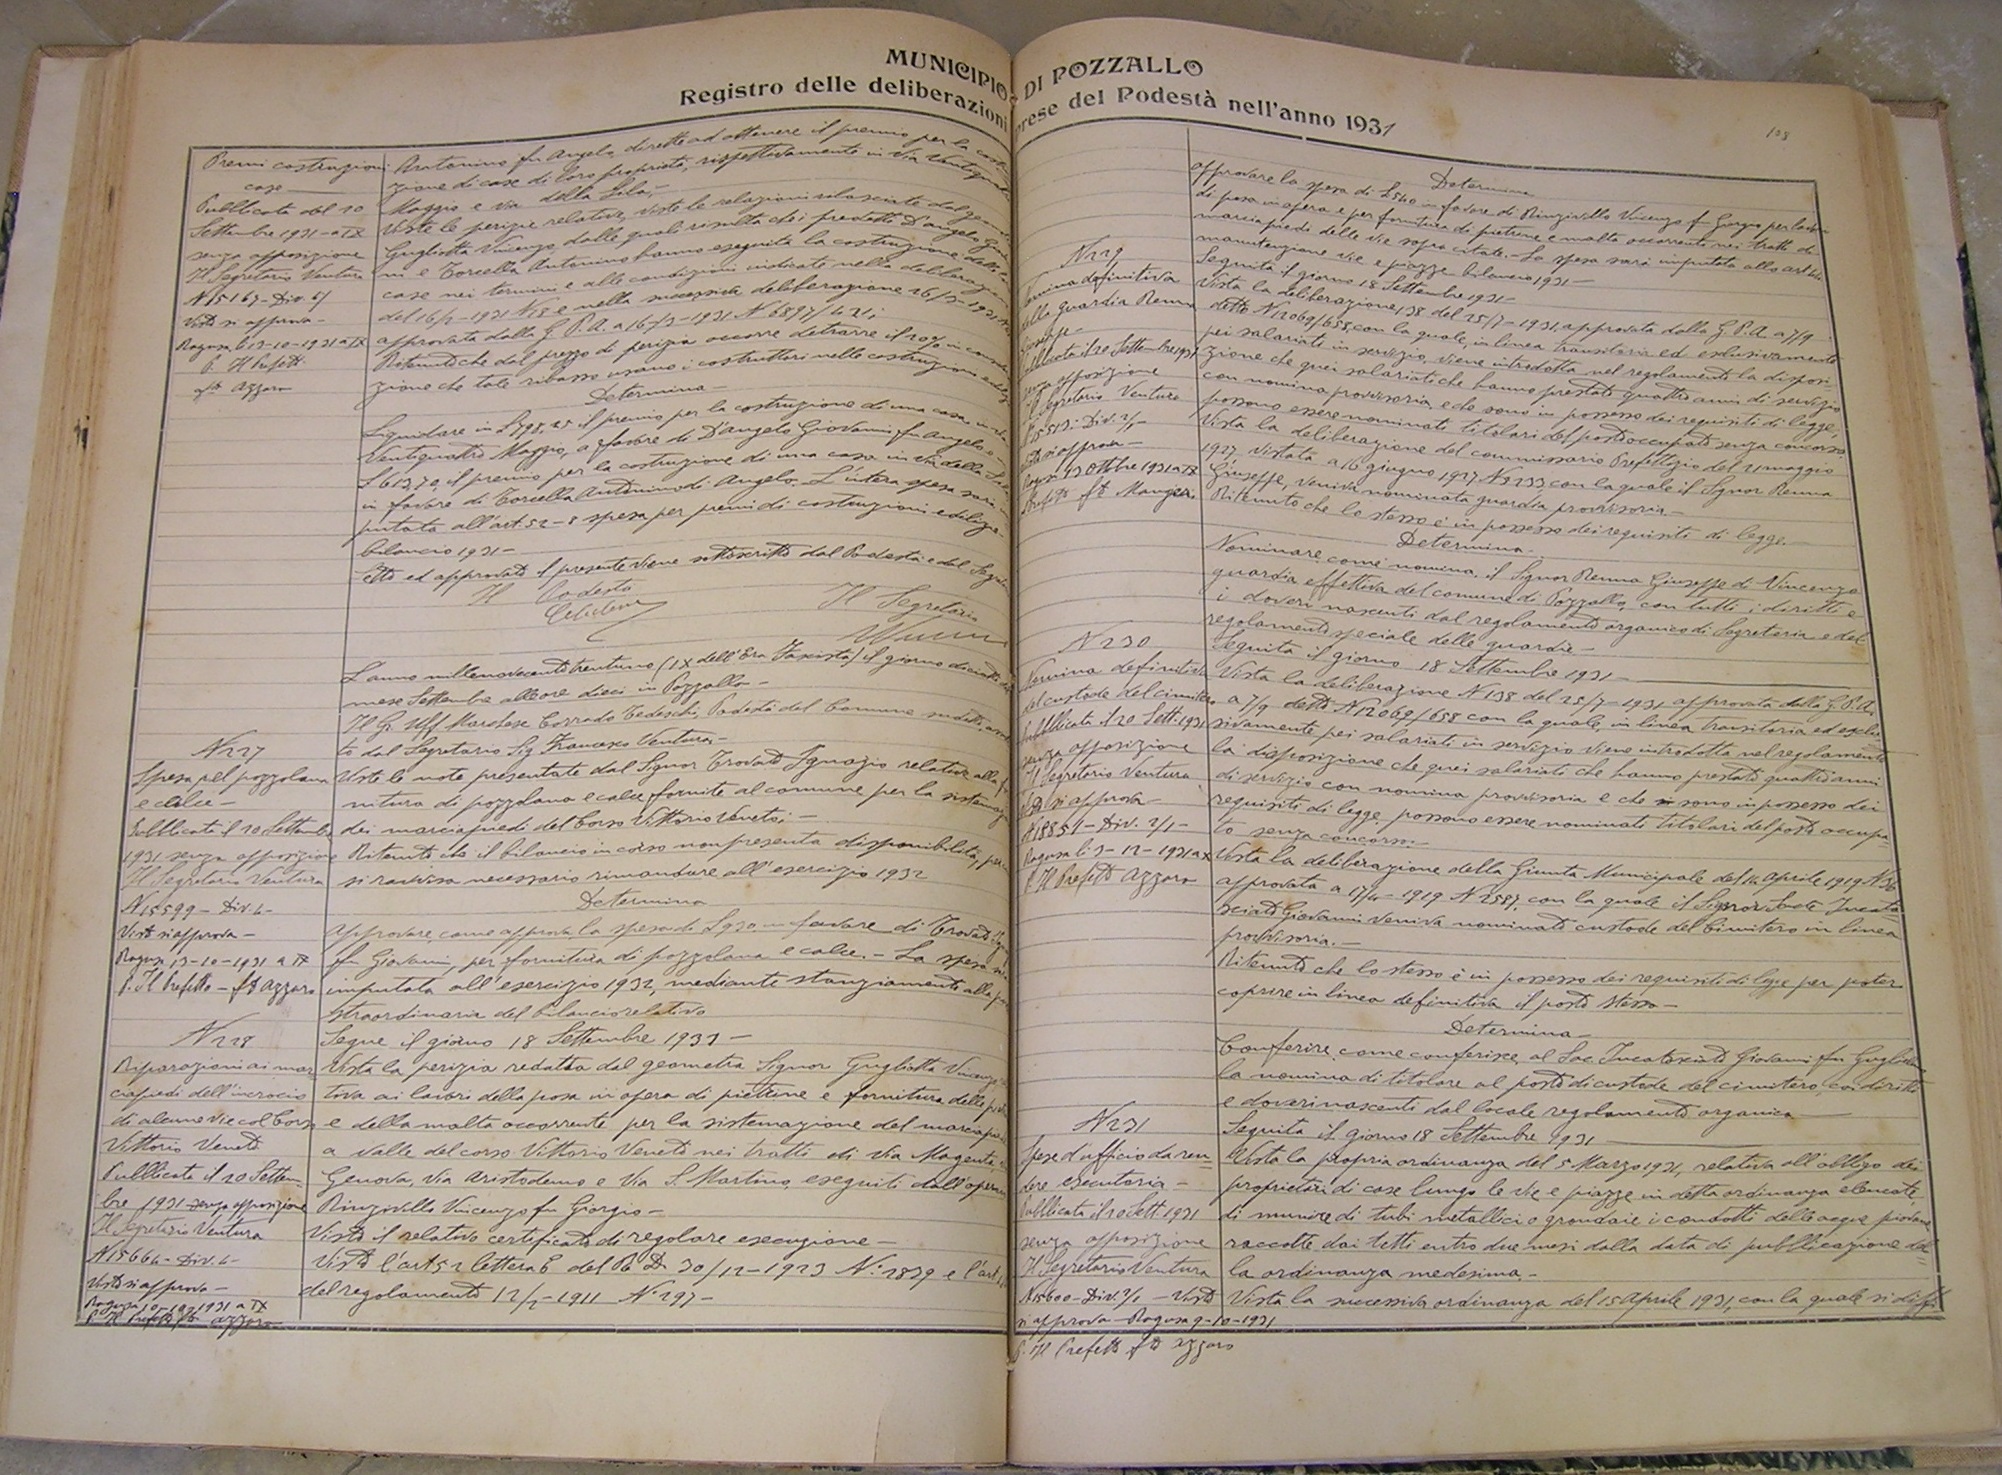 MUNICIPIO DI POZZALLO
Registro delle deliberazioni prese del Podestà nell'anno 1931
108
Premi costruzioni
case
Pubblicata del 20
Settembre 1931-a IX
senza opposizione
Il Segretario Ventura
Visto si approva-
Ragusa li 13-10-1931 a IX
p. Il Prefetto
fto Azzaro
Antonino fu Angelo, dirette ad ottenere il premio per la costru
zione di case di loro proprietà, rispettivamente in Via Ventiquattro
Maggio e via della
Viste le perizie relative, viste le relazioni rilasciate dal geom.
Gugliotta Vincenzo, dalle quali risulta che i predetti D'angelo Giovan
ni e Torcella Antonino hanno eseguita la costruzione delle
case nei termini e alle condizioni indicate nella deliberazione
e nella successiva deliberazione 26/3-1931
approvata dalla G.P.A. a 16/3-1931 N 6897/421;
Ritenuto che dal prezzo di perizia occorre detrarre il 20% in
zione che tale ribasso usano i costruttori nelle costruzioni
Determina
Liquidare in L 798,25 il premio per la costruzione di una casa in via
Ventiquattro Maggio, a favore di D'angelo Giovanni fu Angelo e
L 613,70 il premio per la costruzione di una casa in Via della
in favore di Torcella Antonino di Angelo. L'intera spesa sarà im
putata all'art. 52-8 spesa per premi di costruzioni edilizie-
bilancio 1931-
Letto ed approvato il presente viene sottoscritto dal Podestà e dal Segretario
Il Podestà
Il Segretario
L'anno millenovecentotrentuno (IX dell'Era Fascista) il giorno diciotto del
mese Settembre alle ore dieci in Pozzallo-
Il G. Uff. Marchese Corrado Tedeschi, Podestà del Comune suddetto, assisti
to dal Segretario Sig Francesco Ventura-
N 227
Spesa pel pozzolana
e calce-
Pubblicata il 20 Settembre
1931 senza opposizione
Il Segretario Ventura
N 15599- Div. 4-
Visto si approva-
Ragusa, 13-10-1931 a IX
P. Il Prefetto- fto Azzaro
Viste le note presentate dal Signor Trovato Ignazio relative alla for
nitura di pozzolana e calce fornite al comune per la sistemazione
dei marciapiedi del Corso Vittorio Veneto;-
Ritenuto che il bilancio in corso non presenta disponibilità, per cui
si ravvisa necessario rimandare all'esercizio 1932
Determina
Approvare, come approva, la spesa di L 930 in favore di Trovato Ignazio
fu Giovanni, per fornitura di pozzolana e calce.- La spesa sarà
imputata all'esercizio 1932, mediante stanziamento alla parte
straordinaria del bilancio relativo
N 228
Riparazioni ai mar
ciapiedi dell'incrocio
di alcune vie col Corso
Vittorio Veneto
Pubblicata il 20 Settem-
bre 1931 senza opposizione
Il Segretario Ventura
N 15664- Div. 4-
Visto si approva-
Ragusa 10-10-1931 a IX
P. Il Prefetto fto Azzaro
Segue il giorno 18 Settembre 1931-
Vista la perizia redatta dal geometra Signor Gugliotta Vincenzo rela
tiva ai lavori della posa in opera di piettine e fornitura delle
e della malta occorrente per la sistemazione del marciapiedi
a valle del corso Vittorio Veneto nei tratti di Via Magenta,
Genova, Via Aristodemo e Via S. Martino, eseguiti dall'operaio
Rinzivillo Vincenzo fu Giorgio-
Visto il relativo certificato di regolare esecuzione-
Visto l'art 52 lettera E del R. D. 30/12-1923 N: 2839 e l'art.
del regolamento 12/2-1911 N 297-
Determina
approvare la spesa di L 540 in favore di Rinzivillo Vincenzo fu Giorgio per lavori
di posa in opera e per fornitura di pietrine e malta occorrente nei tratti di
marciapiedi delle vie sopra citate.- La spesa sarà imputata allo art.
manutenzione vie e piazze bilancio 1931-
N 229
Nomina definitiva
della guardia Renna
Giuseppe-
Pubblicata il 20 Settembre 1931
senza opposizione
Il Segretario Ventura
Visto si approva-
Ragusa 13 Ottobre 1931 a IX
Seguita il giorno 18 Settembre 1931-
Vista la deliberazione 138 del 25/7-1931, approvata dalla G.P.A. a 7/9
detto N 12069/658, con la quale, in linea transitoria ed esclusivamente
pei salariati in servizio, viene introdotta nel regolamento la disposi-
zione che quei salariati che hanno prestato quattro anni di servizio
con nomina provvisoria, e che sono in possesso dei requisiti di legge,
possono essere nominati titolari del posto occupato senza concorso-
Vista la deliberazione del commissario Prefettizio del 21 maggio
1927 vistata a 16 giugno 1927 N 9233, con la quale il Signor Renna
Giuseppe, veniva nominato guardia provvisoria-
Ritenuto che lo stesso è in possesso dei requisiti di legge.-
Determina-
Nominare come nomina, il Signor Renna Giuseppe di Vincenzo
guardia effettiva del comune di Pozzallo, con tutti i diritti e
i doveri nascenti dal regolamento organico di Segreteria e dal
regolamento speciale delle guardie-
N 230
Nomina definitiva
del custode del cimitero
Pubblicata il 20 Sett. 1931
senza opposizione
Il Segretario Ventura
Visto si approva-
N 18851- Div. 2/1-
Ragusa li 3-12-1931 a X
P. Il Prefetto Azzaro
Seguita il giorno 18 Settembre 1931-
Vista la deliberazione N 138 del 25/7-1931 approvata dalla G.P.A.
a 7/9 detto N 12069/658 con la quale, in linea transitoria ed esclu
sivamente pei salariati in servizio viene introdotta nel regolamento
la disposizione che quei salariati che hanno prestato quattro anni
di servizio con nomina provvisoria e che sono in possesso dei
requisiti di legge possono essere nominati titolari del posto occupa
to senza concorso-
Vista la deliberazione della Giunta Municipale del 14 Aprile 1919
approvata a N 2587, con la quale il Signor
Giovanni veniva nominato custode del Cimitero in linea
provvisoria.-
Ritenuto che lo stesso è in possesso dei requisiti di legge per poter
coprire in linea definitiva il posto stesso-
Determina-
Conferire, come conferisce, al Giovanni fu Guglielmo
la nomina di titolare al posto di custode del cimitero, coi diritti
e doveri nascenti dal locale regolamento organico
N 231
Spese d'ufficio da ren-
dere esecutoria-
Pubblicata il 20 Sett. 1931
senza opposizione
Il Segretario Ventura
N 15600- Div. 2/1- Visto
si approva- Ragusa 9-10-1931
P. Il Prefetto fto Azzaro
Seguita il giorno 18 Settembre 1931
Vista la propria ordinanza del 5 Marzo 1931, relativa all'obbligo dei
proprietari di case lungo le vie e piazze in detta ordinanza elencate,
di munire di tubi metallici o grondaie i condotti delle acque piovane
raccolte dai tetti entro due mesi dalla data di pubblicazione del
la ordinanza medesima.-
Vista la successiva ordinanza del 15 Aprile 1931, con la quale si